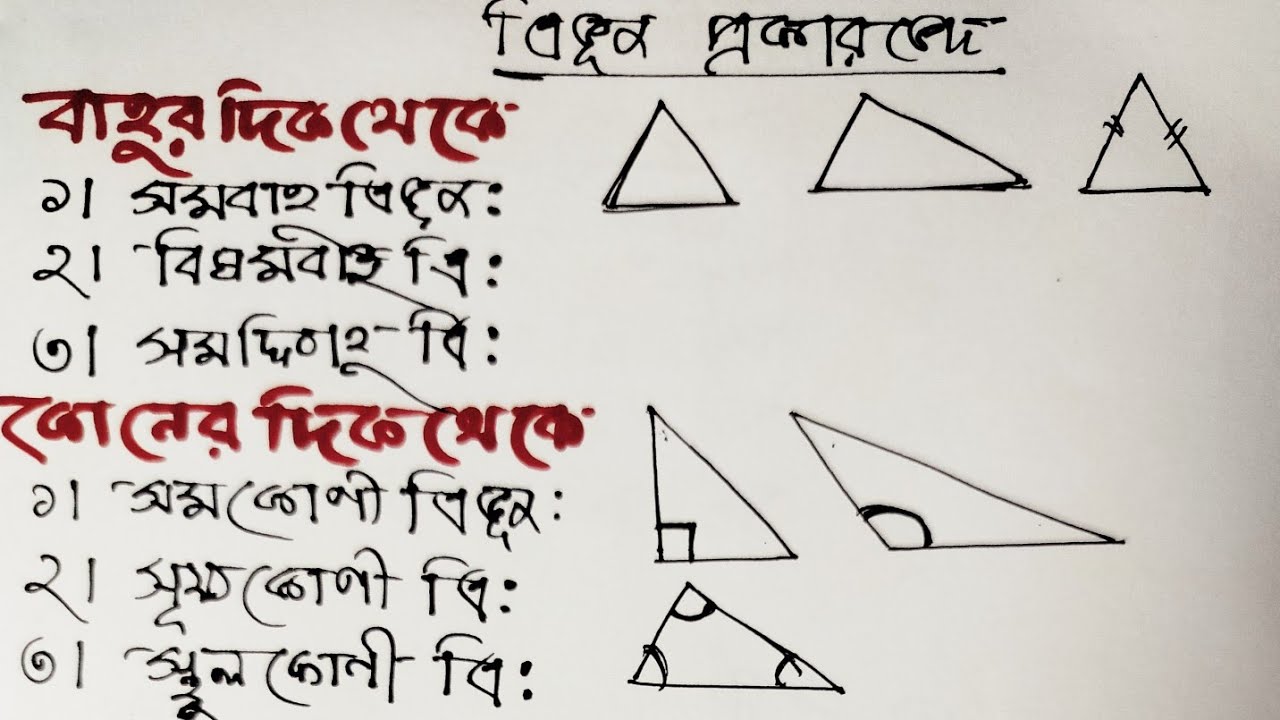 ত্রিভুজ প্রকারভেদ
বাহুর দিক থেকে
১। সমবাহু ত্রিভুজ:
২। বিষমবাহু ত্রি:
৩। সমদ্বিবাহু ত্রি:
কোনের দিক থেকে
১। সমকোণী ত্রিভুজ:
২। সূক্ষ্মকোণী ত্রি:
৩। স্থুলকোণী ত্রি: